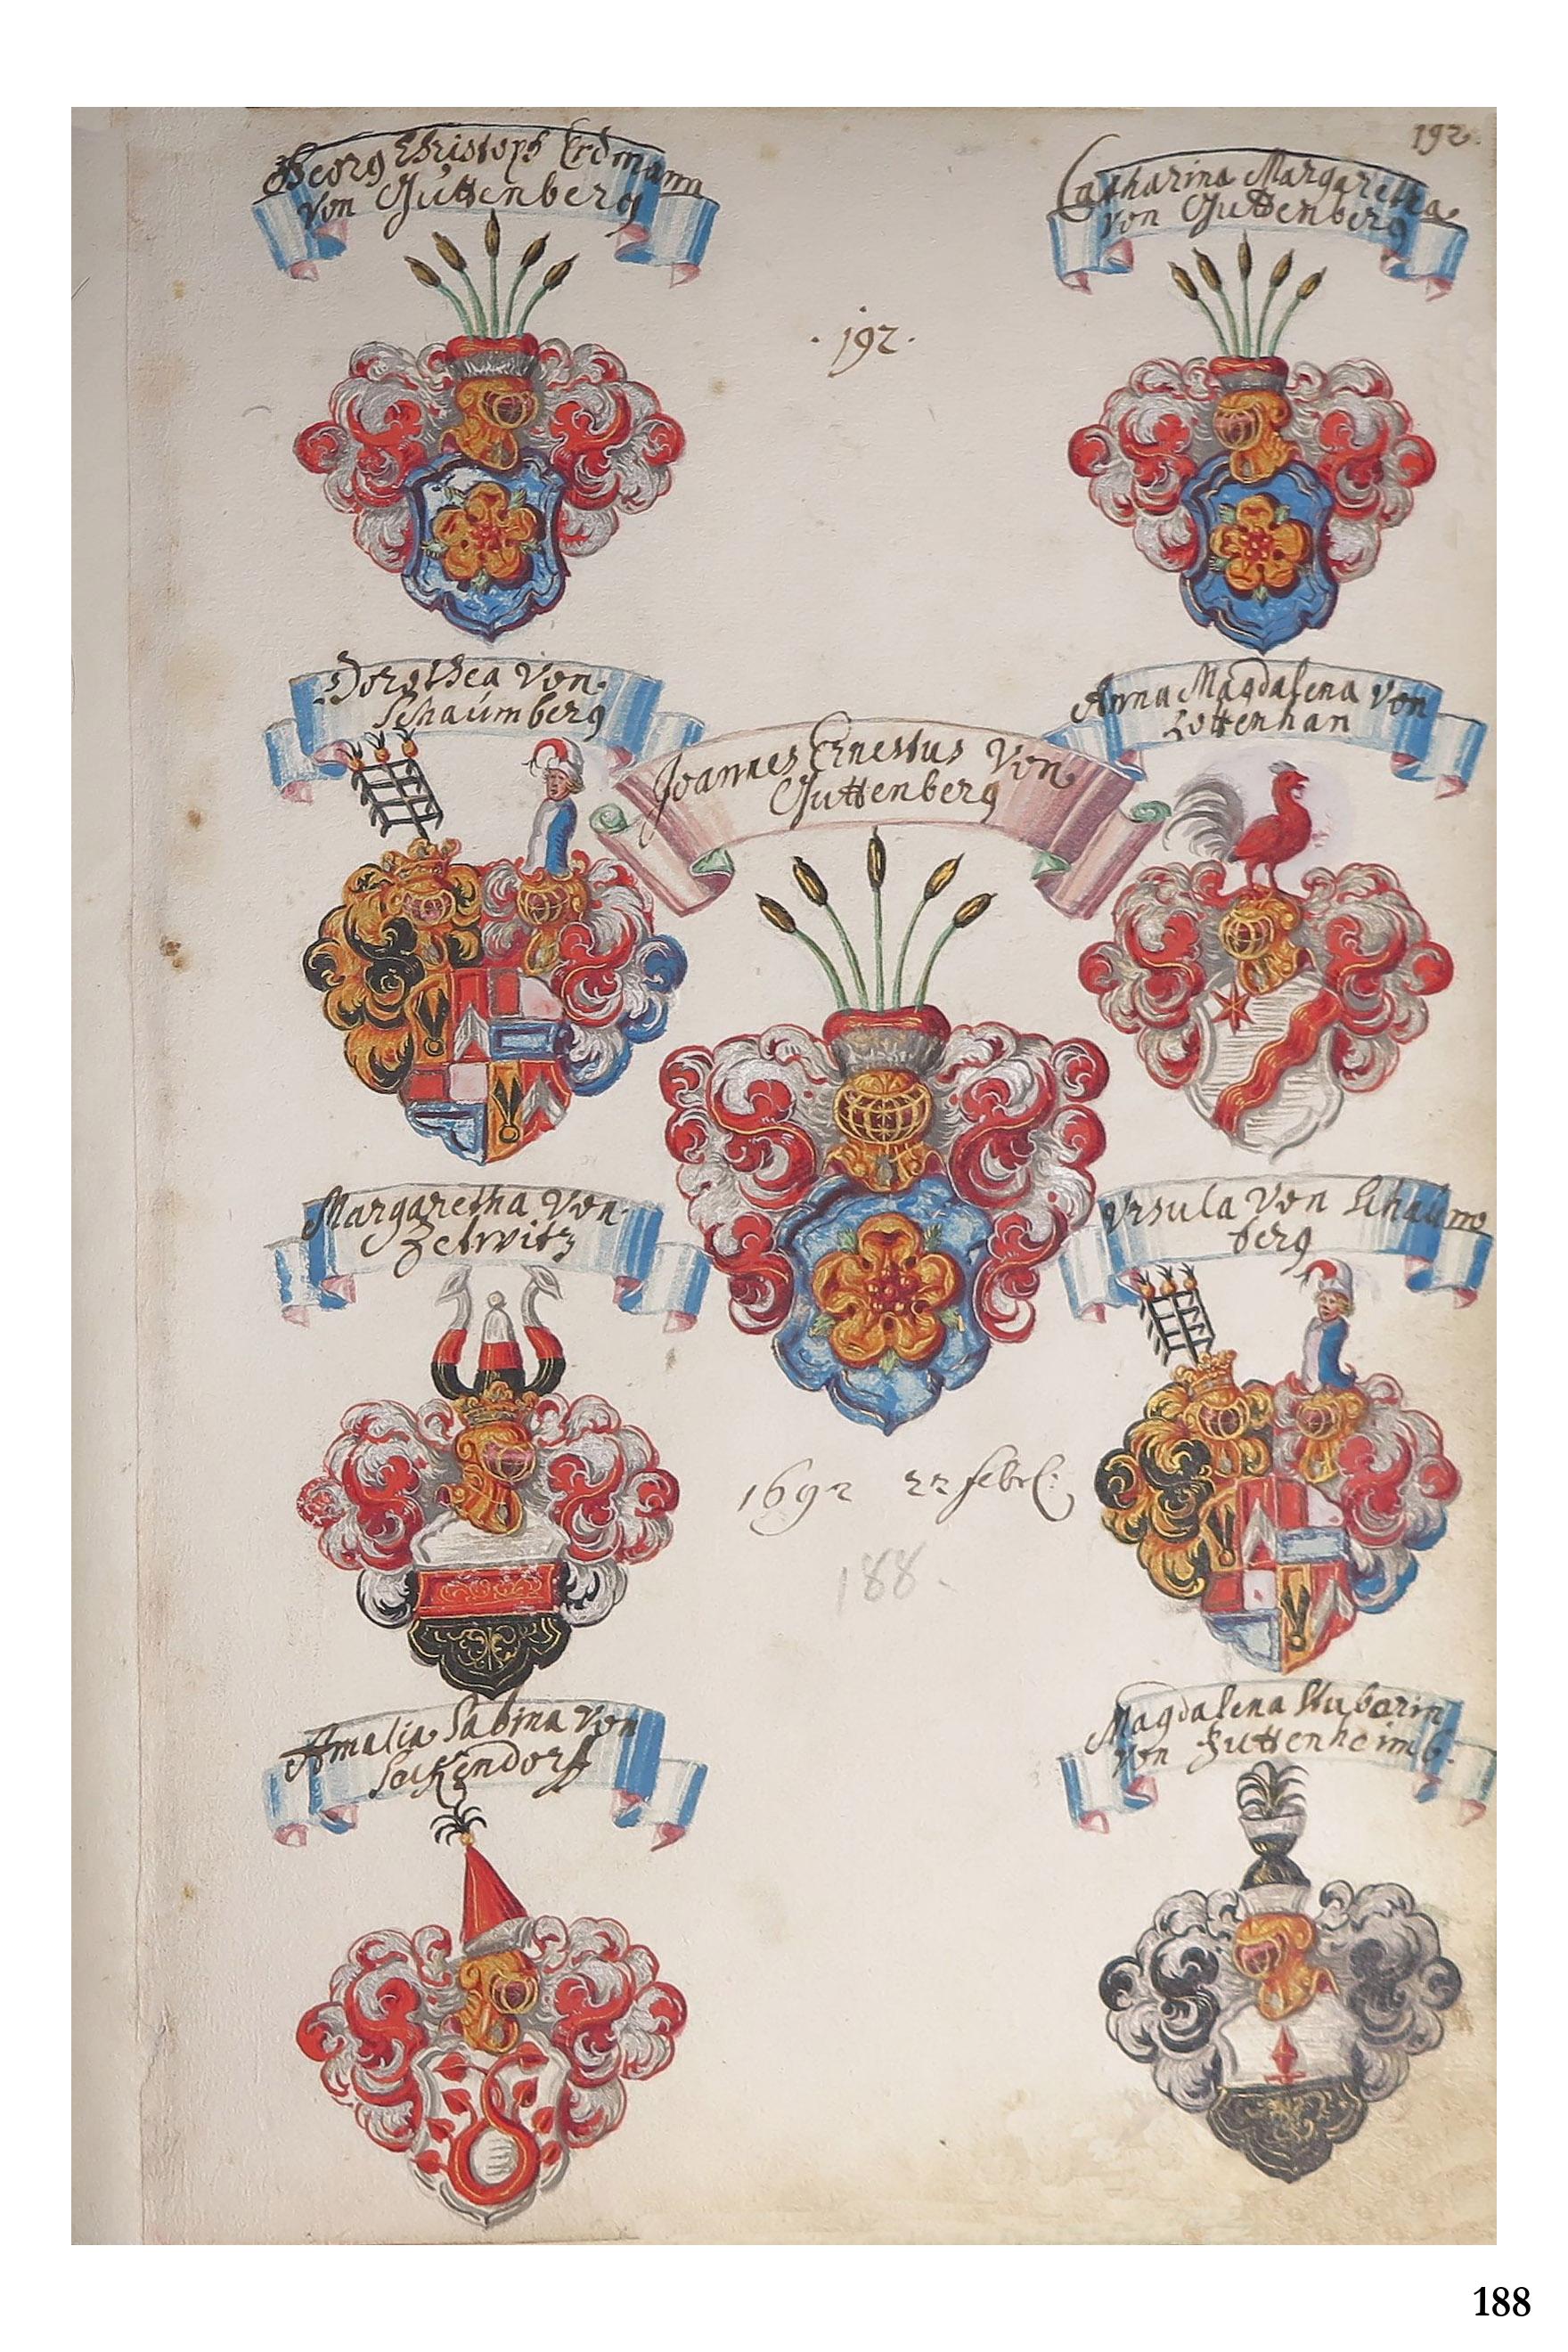 192.
Georg Christoph Erdmann
von Guttenberg
Catharina Margaretha
von Guttenberg
. 192 .
Dorothea von
Schaumberg
Anna Magdalena von
Rottenhan
Joannes Ernestus von
Guttenberg
Margaretha von
Zetwitz
Ursula von Schaum
berg
1692 22 febr:
188.
Amalia Sabina von
Seckendorf
Magdalena Stubarin
von Guttenheimb.
188